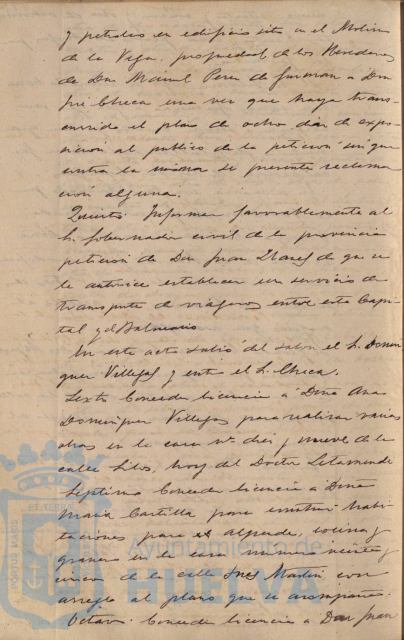 y petroleo en edificio sito en el Molino
de la Vega, propiedad de los Herederos
de Don Manuel Perez de Guzman a Don
José Checa una vez que haya trans-
currido el plazo de ocho dias de expo-
sición al publico de la peticion sin que
contra la misma se presente reclama
ción alguna.
Quinto: Informar favorablemente al
Sr. Gobernador civil de la provincia
peticion de Don Juan Ibañez de que se
le autorice establecer un servicio de
transporte de viajeros entre esta Capi-
tal y el Balneario
En este acto salió del salon el Sr. Domin
guez Villegas y entra el Sr. Checa.
Sexto Conceder licencia a Doña Ana
Dominguez Villegas para realizar varias
obras en la casa nº diez y nueve de la
calle Silos, hoy del Doctor Letamendi
Septimo Conceder licencia a Doña
Maria Castilla para construir habi-
taciones para alpende, cocina y
granero en la casa numero veinte y
cinco de la calle San Martin con
arreglo al plano que se acompaña.
Octavo: Conceder licencia a Don Juan
PORTUS MARIS
Ayuntamiento de
HUELVA